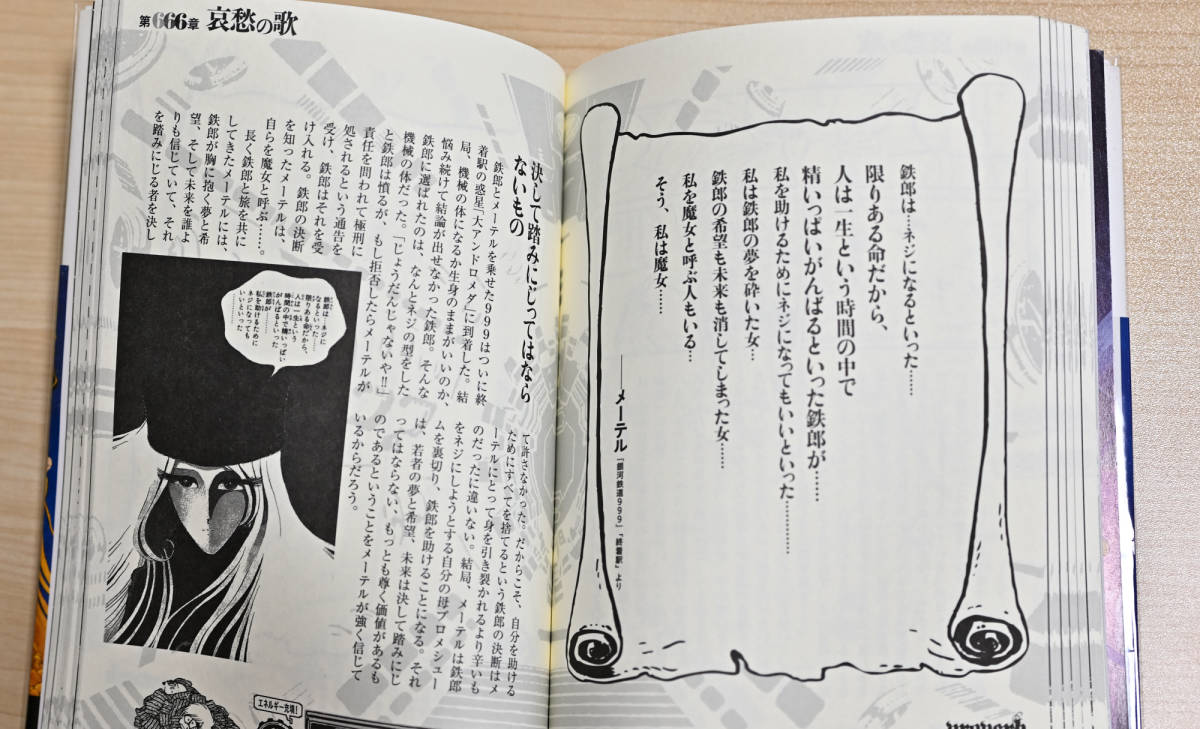 鉄郎は…ネジになるといった……
限りある命だから、
人は一生という時間の中で
精いっぱいがんばるといった鉄郎が………
私を助けるためにネジになってもいいといった…………
私は鉄郎の夢を砕いた女…
鉄郎の希望も未来も消してしまった女……
私を魔女と呼ぶ人もいる…
そう、私は魔女……
――メーテル
「銀河鉄道999」「終着駅」より
第666章 哀愁の歌
決して踏みにじってはなら
ないもの
鉄郎とメーテルを乗せた999はついに終
着駅の惑星「大アンドロメダ」に到着した。結
局、機械の体になるか生身のままがいいのか、
悩み続けて結論が出せなかった鉄郎。そんな
鉄郎に選ばれたのは、なんとネジの型をした
機械の体だった。「じょうだんじゃないや!!」
と鉄郎は憤るが、もし拒否したらメーテルが
責任を問われて極刑に
処されるという通告を
受け、鉄郎はそれを受
け入れる。鉄郎の決断
を知ったメーテルは、
自らを魔女と呼ぶ……。
長く鉄郎と旅を共に
してきたメーテルには、
鉄郎が胸に抱く夢と希
望、そして未来を誰よ
りも信じていて、それ
を踏みにじる者を決し
て許さなかった。だからこそ、自分を助ける
ためにすべてを捨てるという鉄郎の決断はメ
ーテルにとって身を引き裂かれるより辛いも
のだったに違いない。結局、メーテルは鉄郎
をネジにしようとする自分の母プロメシュー
ムを裏切り、鉄郎を助けることになる。それ
は、若者の夢と希望、未来は決して踏みにじ
ってはならない、もっとも尊く価値があるも
のであるということをメーテルが強く信じて
いるからだろう。
鉄郎は…ネジに
なるといった……
限りある命だから、
人は一生という
時間の中で精いっぱい
がんばるといった
鉄郎が…
私を助けるために
ネジになっても
いいといった
エネルギー充填!